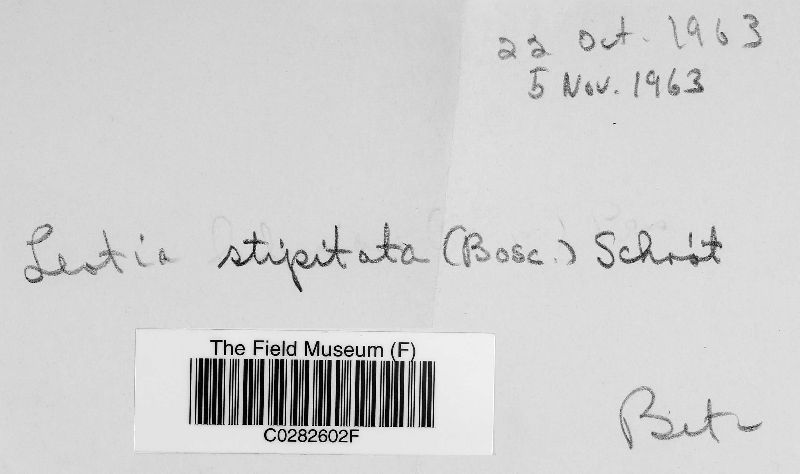 22 Oct. 1963
5 Nov. 1963
Leotia stipitata (Bosc.) Schröt
The Field Museum (F)
C0282602F
Betz